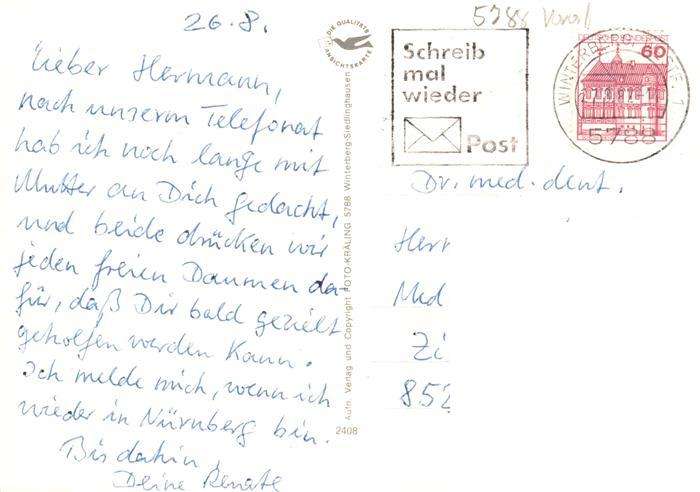 26.8.
Lieber Hermann,
nach unserm Telefonat
hab ich noch lange mit
Mutter an Dich gedacht,
und beide drücken wir
jeden freien Daumen da-
für, daß Dir bald gezielt
geholfen werden kann.
Ich melde mich, wenn ich
wieder in Nürnberg bin.
Bis dahin,
Deine Renate
DIE QUALITÄTS
ANSICHTSKARTE
Aufn. Verlag und Copyright FOTO-KRALING 5788 Winterberg-Siedlinghausen
2408
5788
Schreib
mal
wieder
Post
WINTERBERG
1
5788
60
Dr. med. dent.
Herr
Med
Zi
852